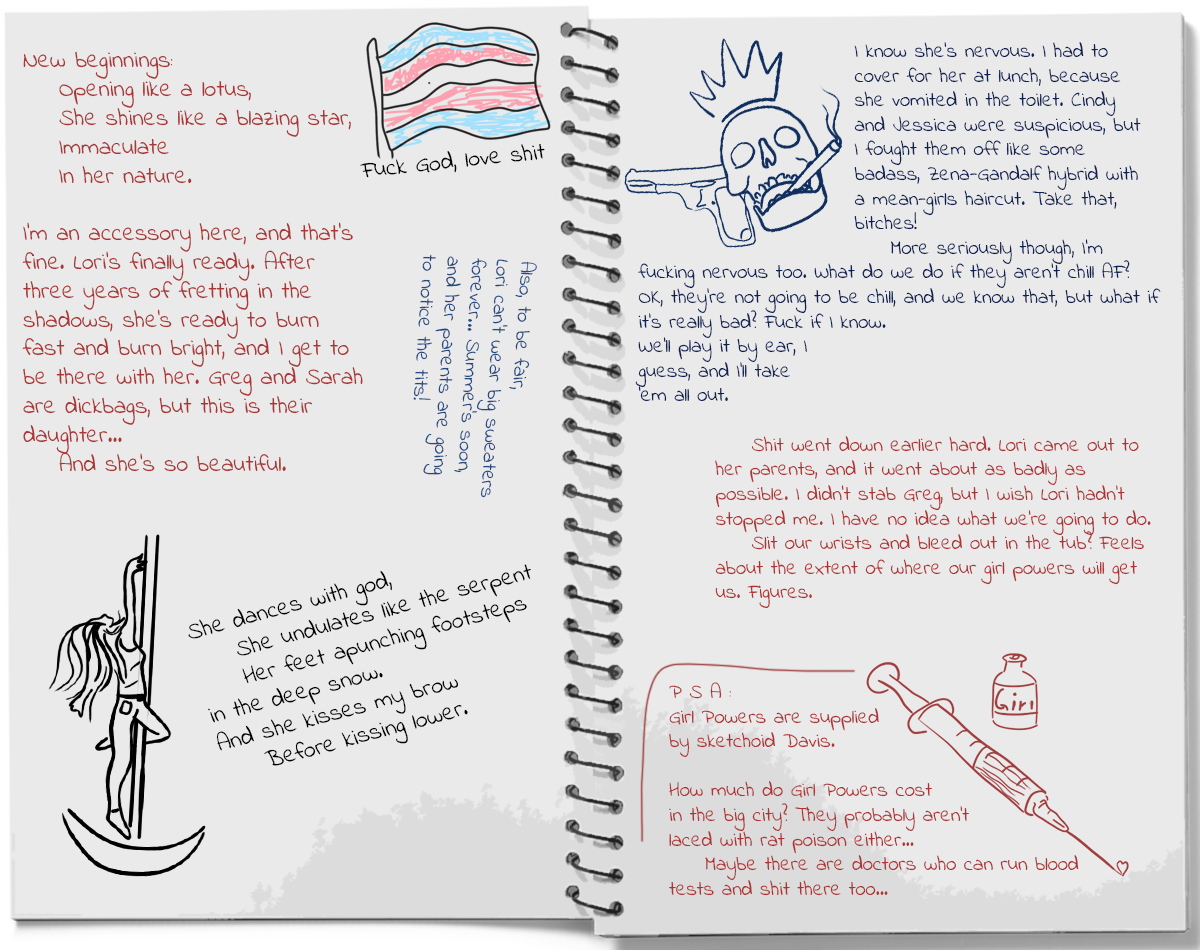 New beginnings:
Opening like a lotus,
She shines like a blazing star,
Immaculate
In her nature.
Fuck God, love shit
I'm an accessory here, and that's
fine. Lori's finally ready. After
three years of fretting in the
shadows, she's ready to burn
fast and burn bright, and I get to
be there with her. Greg and Sarah
are dickbags, but this is their
daughter...
And she's so beautiful.
Also, to be fair,
Lori can't wear big sweaters
forever... Summer's soon,
and her parents are going
to notice the tits!
She dances with god,
She undulates like the serpent
Her feet apunching footsteps
in the deep snow.
And she kisses my brow
Before kissing lower.
I know she's nervous. I had to
cover for her at lunch, because
she vomited in the toilet. Cindy
and Jessica were suspicious, but
I fought them off like some
badass, Zena-Gandalf hybrid with
a mean-girls haircut. Take that,
bitches!
More seriously though, I'm
fucking nervous too. What do we do if they aren't chill AF?
OK, they're not going to be chill, and we know that, but what if
it's really bad? Fuck if I know.
We'll play it by ear, I
guess, and I'll take
'em all out.
Shit went down earlier hard. Lori came out to
her parents, and it went about as badly as
possible. I didn't stab Greg, but I wish Lori hadn't
stopped me. I have no idea what we're going to do.
Slit our wrists and bleed out in the tub? Feels
about the extent of where our girl powers will get
us. Figures.
Girl
P S A :
Girl Powers are supplied
by sketchoid Davis.
How much do Girl Powers cost
in the big city? They probably aren't
laced with rat poison either...
Maybe there are doctors who can run blood
tests and shit there too...